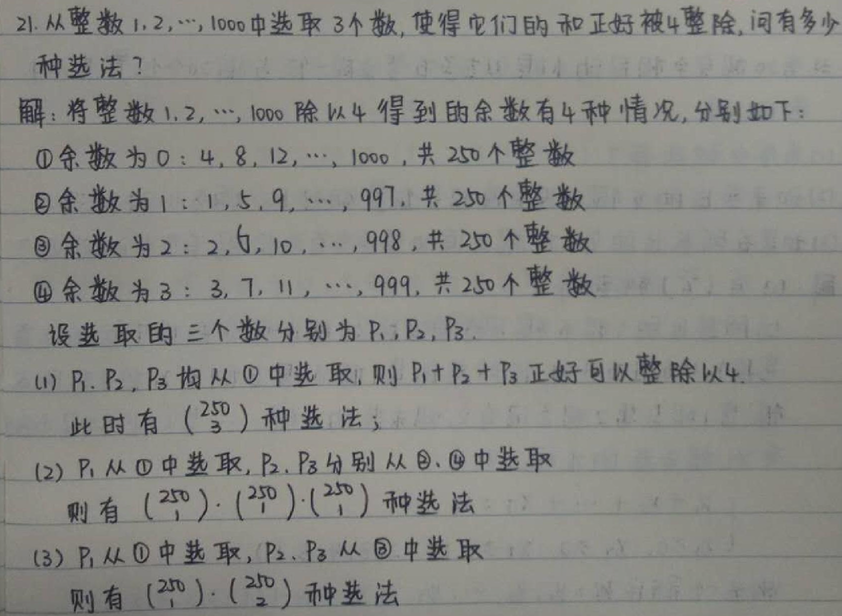 21. 从整数 1, 2, …, 1000 中选取 3个数, 使得它们的和正好被4整除, 问有多少
种选法?
解: 将整数 1, 2, …, 1000 除以4 得到的余数有4种情况, 分别如下:
①余数为0: 4, 8, 12, …, 1000, 共250个整数
②余数为1: 1, 5, 9, …, 997, 共250个整数
③余数为2: 2, 6, 10, …, 998, 共250个整数
④余数为3: 3, 7, 11, …, 999, 共250个整数
设选取的三个数分别为 P₁, P₂, P₃.
(1) P₁, P₂, P₃ 均从①中选取, 则 P₁+P₂+P₃ 正好可以整除以4.
此时有 (250 3) 种选法;
(2) P₁ 从①中选取, P₂, P₃ 分别从②、④中选取
则有 (250 1)·(250 1)·(250 1) 种选法
(3) P₁ 从①中选取, P₂, P₃ 从③中选取
则有 (250 1)·(250 2) 种选法